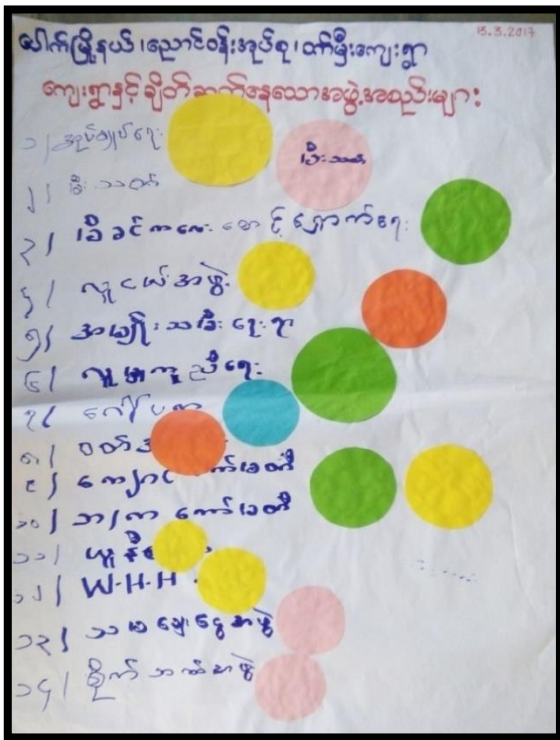 ပေါက်မြို့နယ်၊ညောင်ဝန်းအုပ်စု၊တာမှီးကျေးရွာ
15.3.2017
ကျေးရွာနှင့်ချိတ်ဆက်နေသောအဖွဲ့အစည်းများ
၁/ အုပ်ချုပ်ရေး
မီးသတ်
၂/ မီးသတ်
၃/ မိခင်ကလေးစောင့်ရှောက်ရေး
၄/ လူငယ်အဖွဲ့
၅/ အမျိုးသမီးရေးရာ
၆/ လူမှုကူညီရေး
၇/
၈/ ဝတ်
၉/ ကျောင်း ကော်မတီ
၁၀/ ဘ/က ကော်မတီ
၁၁/ ယူနီ
၁၂/ W.H.H
၁၃/ သမချေးငွေအဖွဲ့
၁၄/ စိုက်ဘဏ်အဖွဲ့